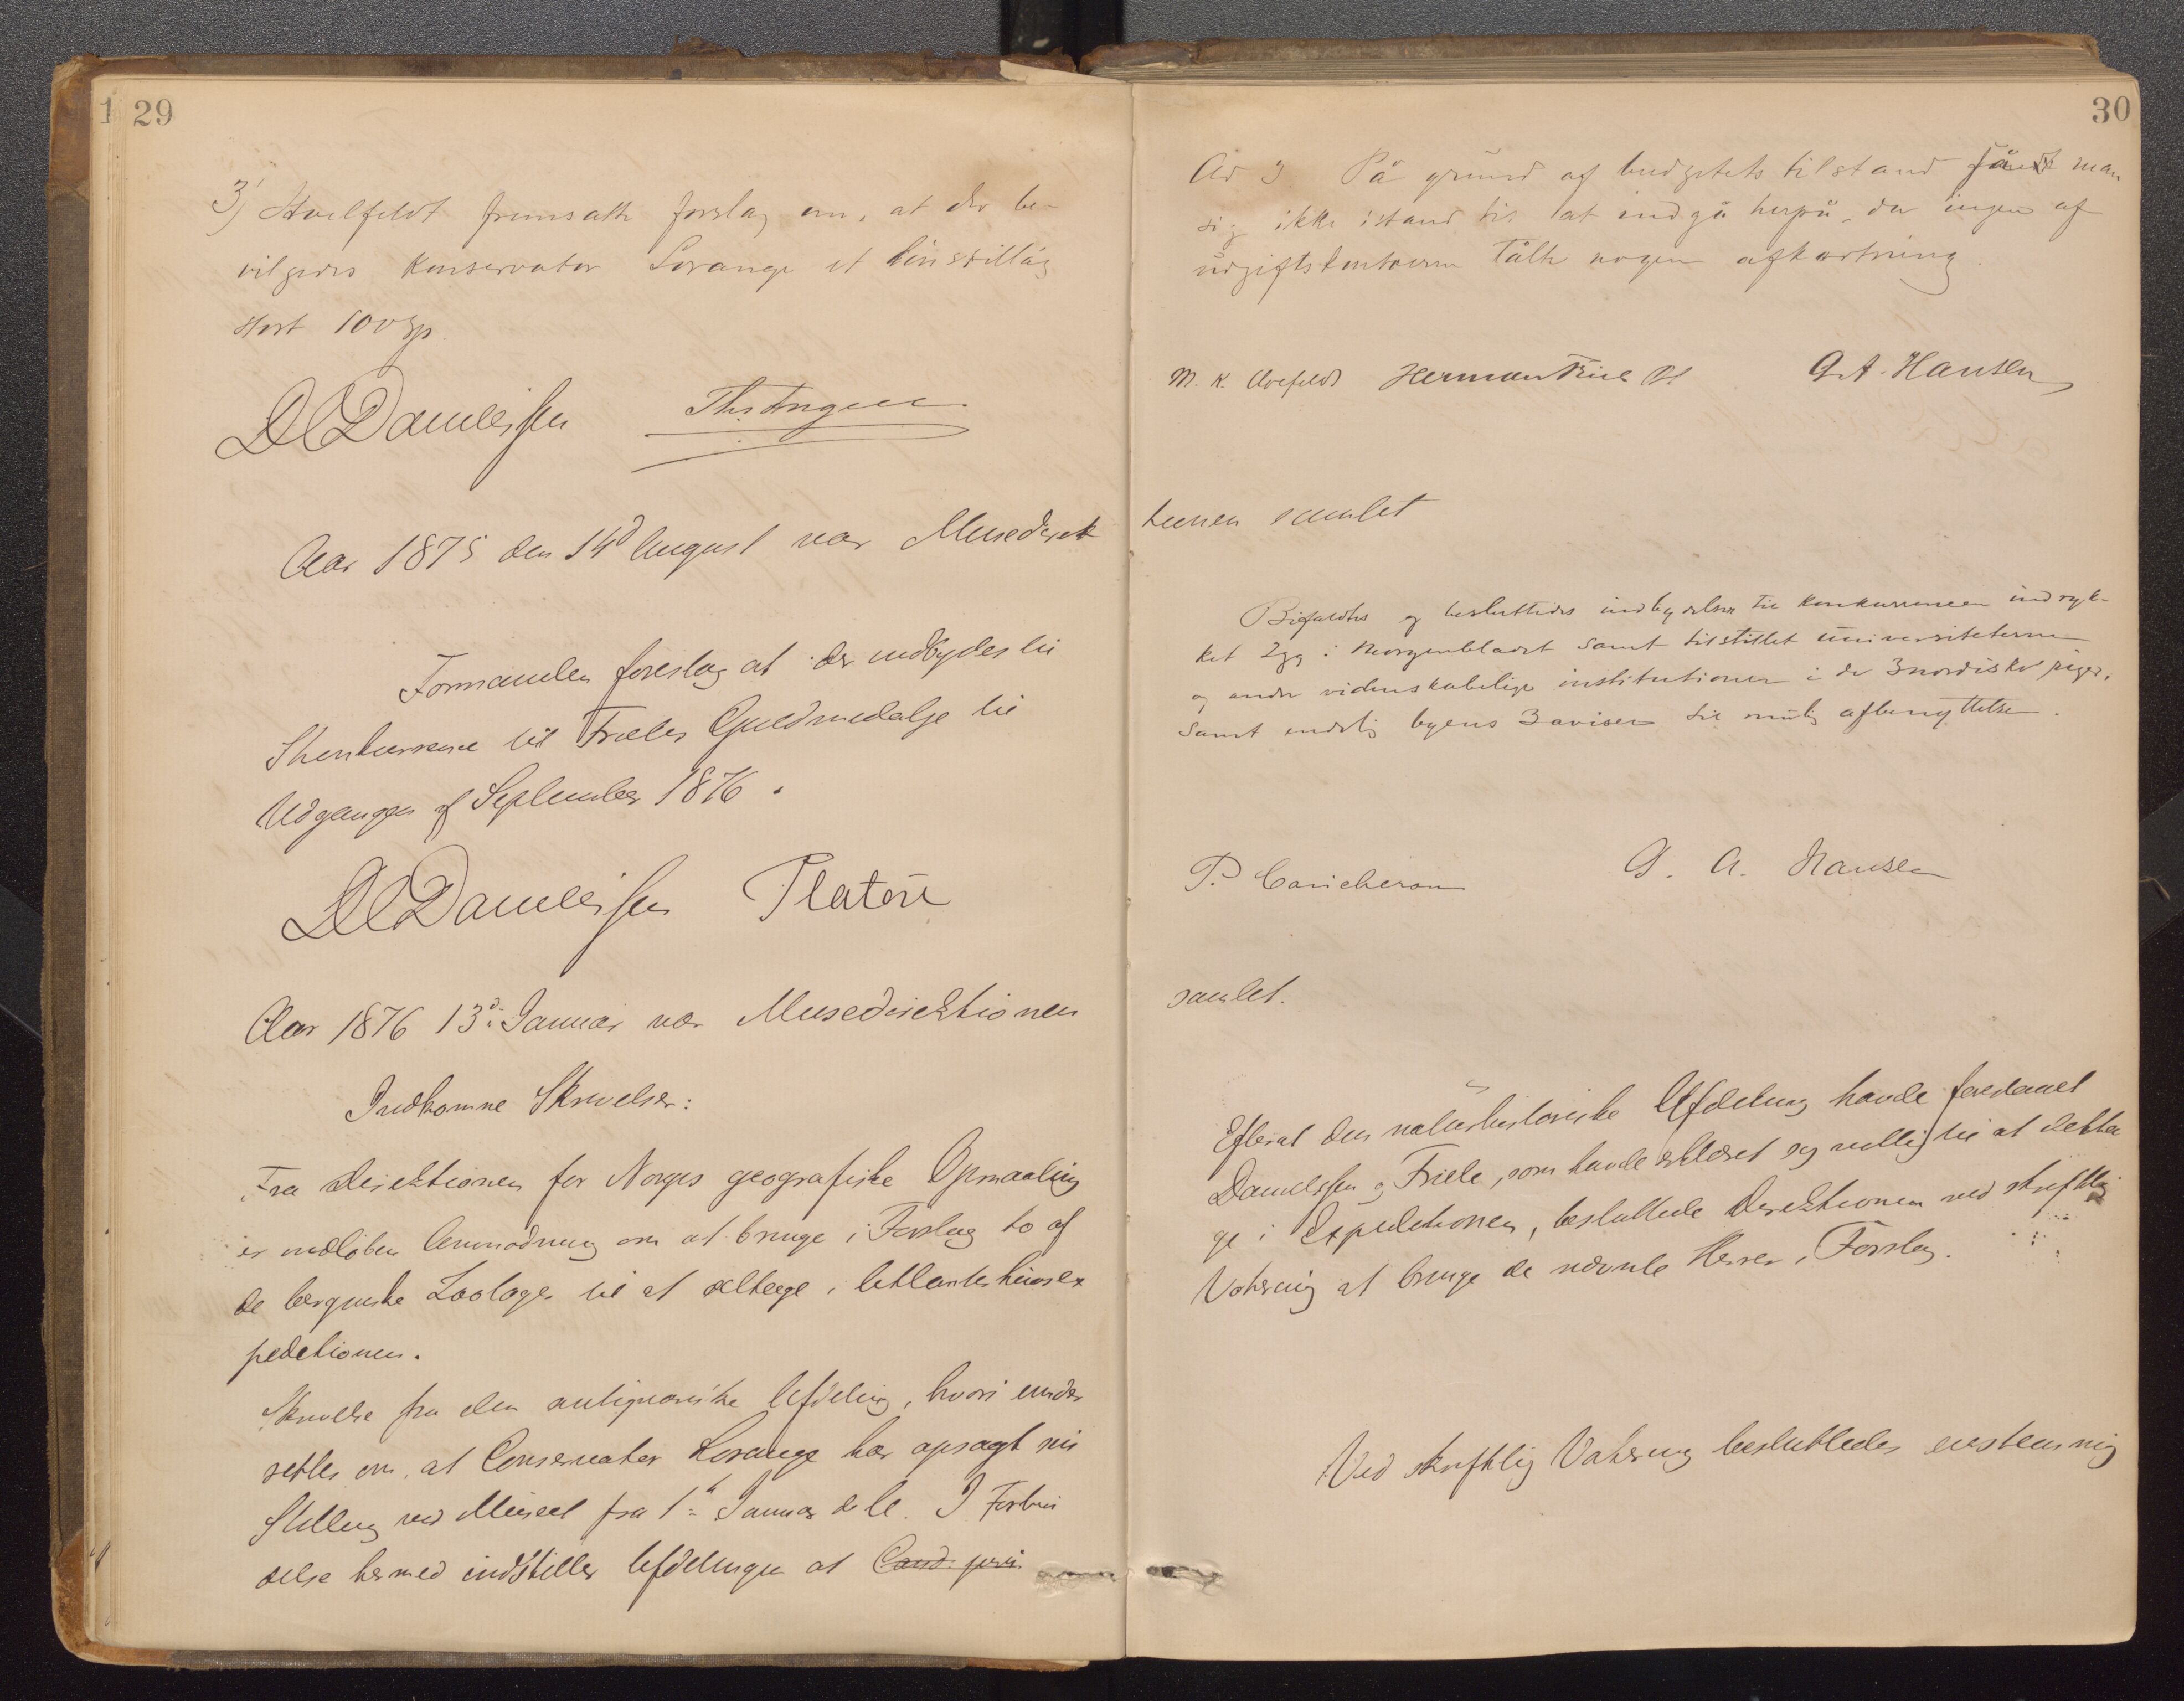 29
3) Hvilfeldt fremsatte forslag om, at der be-
vilgedes Konservator Lorange et løns tillæg
stort 100 Sp.
DCDanielssen
Aar 1875 den 14d August var Musedirek
Formanden foreslog at der indbydes til
Konkurrence til Frieles Guldmedalje til
Udgangen af September 1876.
DCDanielssen Platou
Aar 1876 13d Januar var Musedirektionen
Indkomne Skrivelser:
Fra Direktionen for Norges geografiske Opmaaling
er indløben Anmodning om at bringe i Forslag to af
de bergenske Zoologer til at deltage i Atlanterhavsex
peditionen.
Skrivelse fra den antiqvariske Afdeling, hvori under
rettes om, at Conservator Lorange har opsagt sin
Stilling ved Museet fra 1ste Januar d. A. I Forbin
delse hermed indstiller Afdelingen at Cand. juris
30
Ad 3 På grund af budgetets tilstand så man
sig ikke istand til at indgå herpå, da ingen af
udgiftskontoerne tålte nogen afkortning.
Herman Friele G. A. Hansen
tionen samlet
Bifaldtes og besluttedes indbydelsen til konkurrencen indryk-
ket 2gg i Morgenbladet samt tilstillet universiteterne
og andre videnskabelige institutioner i de 3 nordiske riger,
samt endelig byens 3 aviser til mulig afbenyttelse.
G. A. Hansen
samlet.
Efterat den naturhistoriske Afdeling havde foreslaaet
Danielssen og Friele, som havde erklæret sig villig til at delta
ge i Expeditionen, besluttede Direktionen ved skriftlig
Votering at bringe de nævnte Herrer i Forslag.
Ved skriftlig Votering besluttedes enstemmig